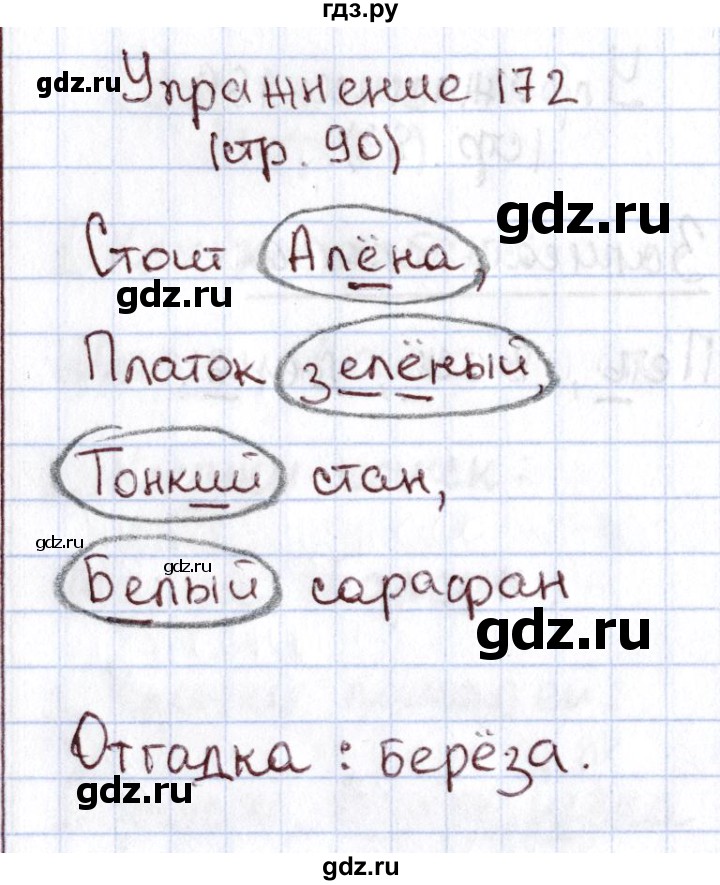 гдз.ру
gdz.ru
Упражнение 172
(стр. 90)
gdz.ru
Стоит Алёна,
gdz.ru
Платок зелёный,
Тонкий стан,
gdz.ru
gdz.ru
Белый сарафан
gdz.ru
Отгадка: берёза.
gdz.ru
gdz.ru